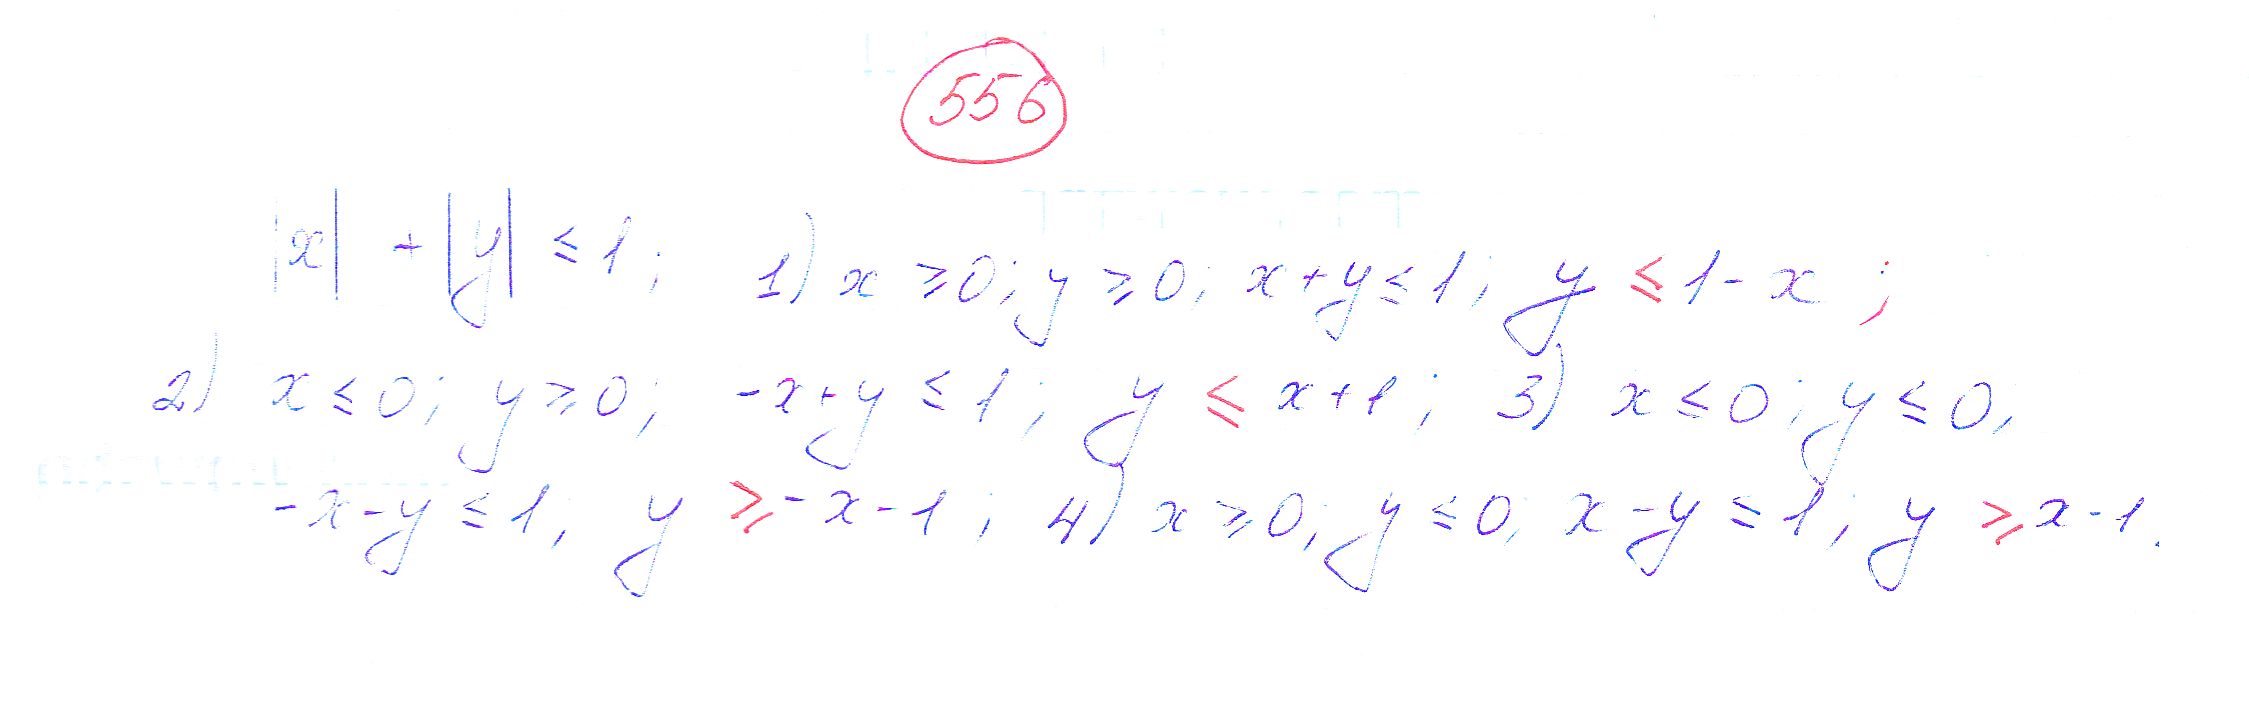 556
|x| + |y| ≤ 1; 1) x ≥ 0; y ≥ 0; x+y ≤ 1; y ≤ 1-x ;
2) x ≤ 0; y ≥ 0; -x+y ≤ 1; y ≤ x+1; 3) x ≤ 0; y ≤ 0,
-x-y ≤ 1, y ≥ -x-1; 4) x ≥ 0, y ≤ 0; x-y ≤ 1, y ≥ x-1.